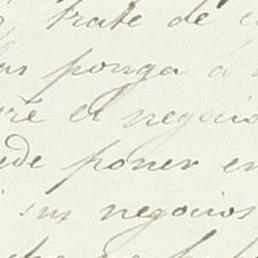 trate de
ponga á
ré el negocio
ede poner en
sus negocios